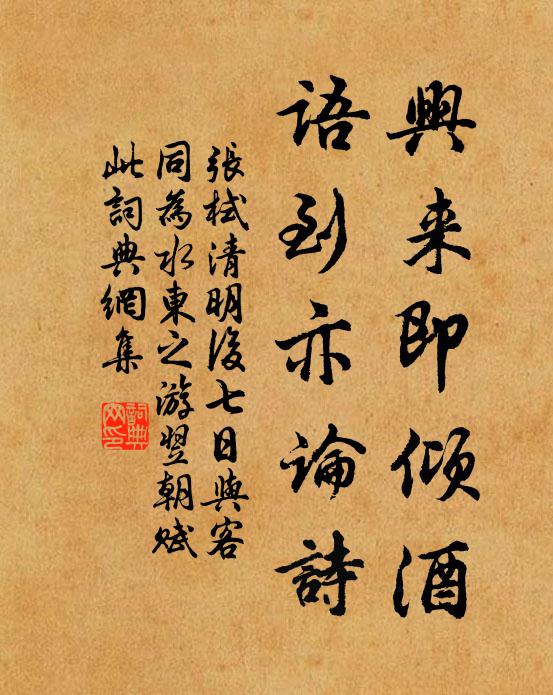 興来即倾酒
語到亦論詩
張栻清明後七日與客
同為水東之游翌朝賦
此詞典網集
詞典网印